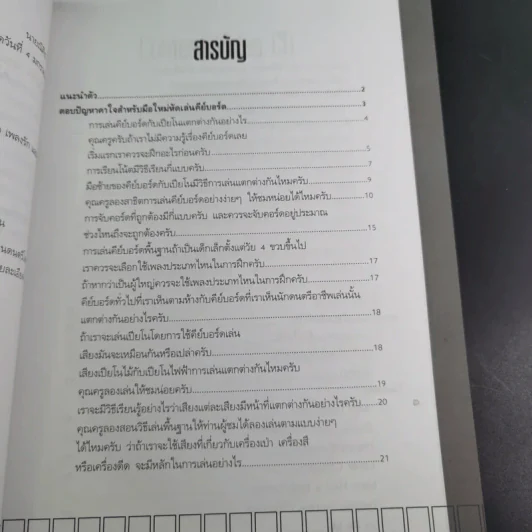 สารบัญ
แนะนำตัว 2
ตอบปัญหาคาใจสำหรับมือใหม่หัดเล่นคีย์บอร์ด 3
การเล่นคีย์บอร์ดกับเปียโนแตกต่างกันอย่างไร 4
คุณครูครับถ้าเราไม่มีความรู้เรื่องคีย์บอร์ดเลย
เริ่มแรกเราควรจะฝึกอะไรก่อนครับ 5
การเรียนโน้ตมีวิธีเรียนกี่แบบครับ 7
มือซ้ายของคีย์บอร์ดกับเปียโนมีวิธีการเล่นแตกต่างกันไหมครับ 9
คุณครูลองสาธิตการเล่นคีย์บอร์ดอย่างง่ายๆ ให้ชมหน่อยได้ไหมครับ 10
การจับคอร์ดที่ถูกต้องมีกี่แบบครับ และควรจะจับคอร์ดอยู่ประมาณ
ช่วงไหนถึงจะถูกต้องครับ 15
การเล่นคีย์บอร์ดพื้นฐานถ้าเป็นเด็กเล็กตั้งแต่วัย 4 ขวบขึ้นไป
เราควรจะเลือกใช้เพลงประเภทไหนในการฝึกครับ 17
ถ้าหากว่าเป็นผู้ใหญ่ควรจะใช้เพลงประเภทไหนในการฝึกครับ 17
คีย์บอร์ดทั่วไปที่เราเห็นตามห้างกับคีย์บอร์ดที่เราเห็นนักดนตรีอาชีพเล่นนั้น
แตกต่างกันอย่างไรครับ 18
ถ้าเราจะเล่นเปียโนโดยการใช้คีย์บอร์ดเล่น
เสียงมันจะเหมือนกันหรือเปล่าครับ 18
เสียงเปียโนไม้กับเปียโนไฟฟ้าการเล่นแตกต่างกันไหมครับ
คุณครูลองเล่นให้ชมหน่อยครับ 19
เราจะมีวิธีเรียนรู้อย่างไรว่าเสียงแต่ละเสียงมีหน้าที่แตกต่างกันอย่างไรครับ 20
คุณครูลองสอนวิธีเล่นพื้นฐานให้ท่านผู้ชมได้ลองเล่นตามแบบง่ายๆ
ได้ไหมครับ ว่าถ้าเราจะใช้เสียงที่เกี่ยวกับเครื่องเป่า เครื่องสี
หรือเครื่องดีด จะมีหลักในการเล่นอย่างไร 21